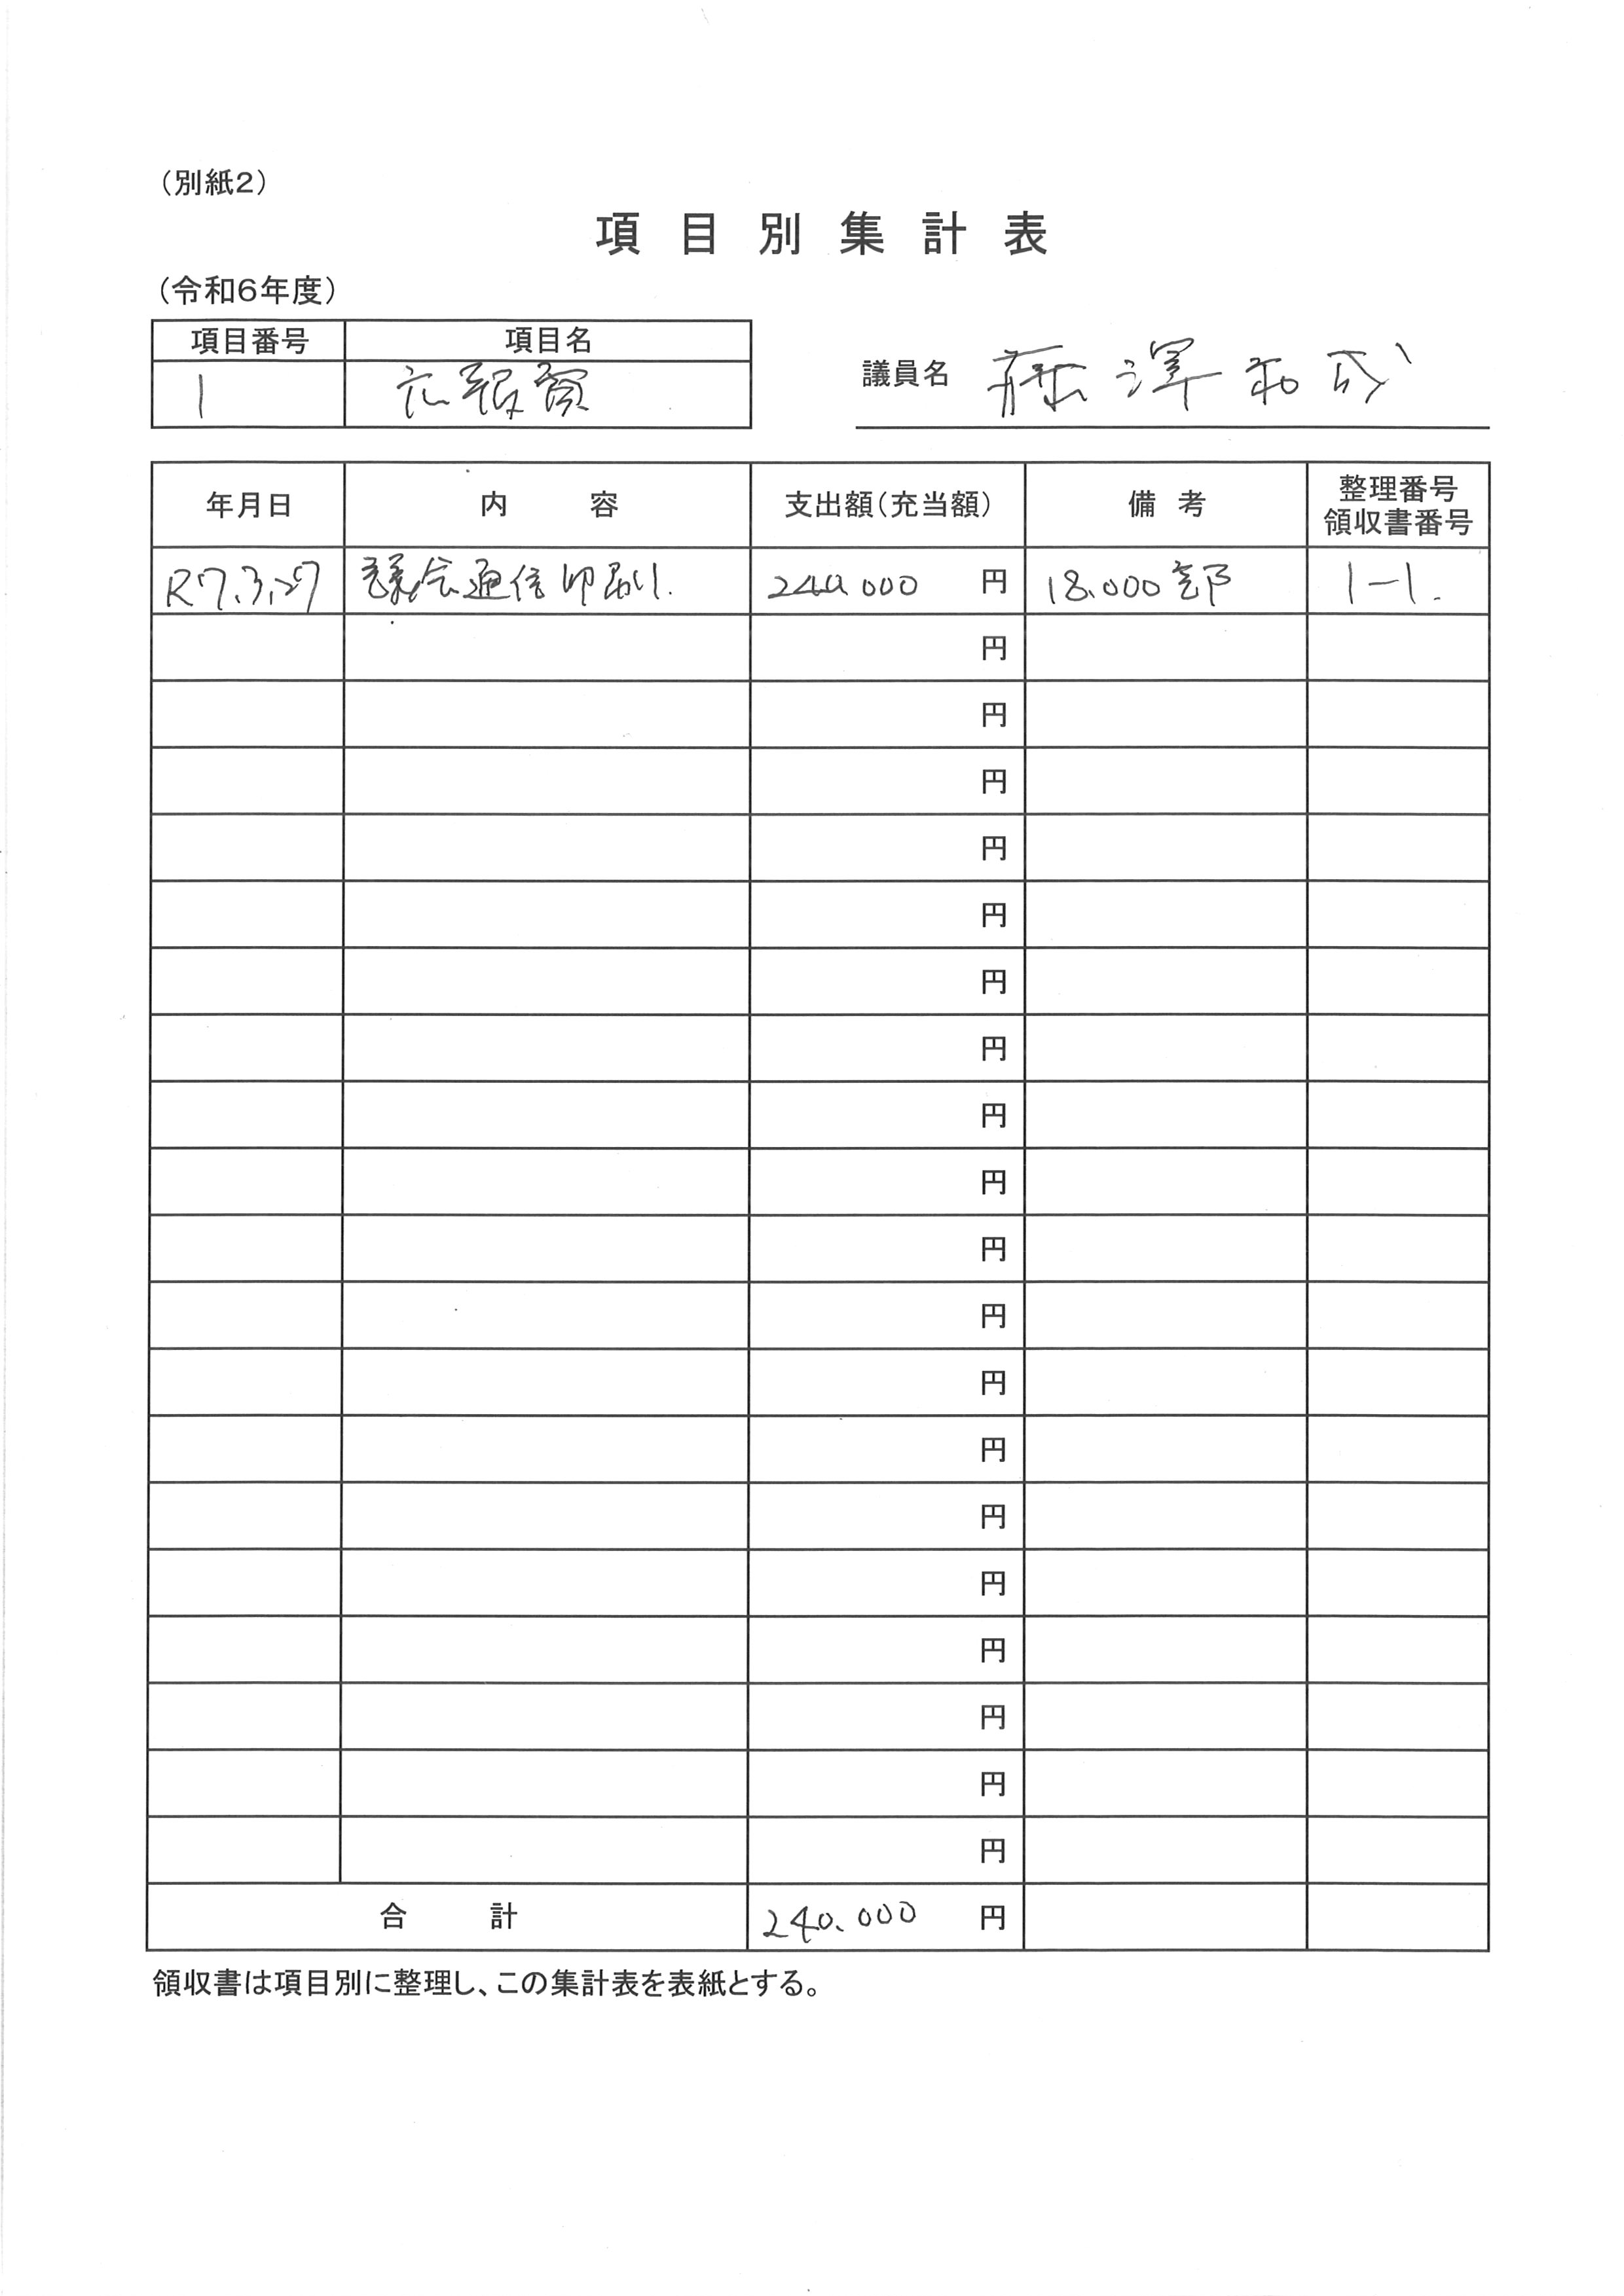 （別紙２）
項目別集計表
（令和６年度）
項目番号 項目名
1 広報費
議員名 藤澤和成
年月日 内容 支出額（充当額） 備考 整理番号 領収書番号
R7.3.27 議会通信印刷 240.000 円 18.000部 1-1.
円
円
円
円
円
円
円
円
円
円
円
円
円
円
円
円
円
円
円
合計 240.000 円
領収書は項目別に整理し、この集計表を表紙とする。